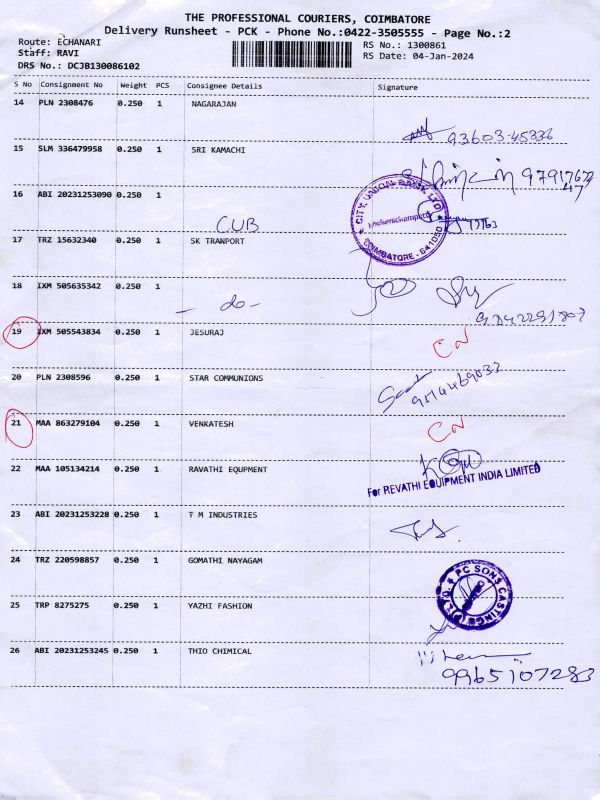 THE PROFESSIONAL COURIERS, COIMBATORE
Delivery Runsheet - PCK - Phone No.:0422-3505555 - Page No.:2
Route: ECHANARI RS No.: 1300861
Staff: RAVI RS Date: 04-Jan-2024
DRS No.: DCJB130086102
S No Consignment No Weight PCS Consignee Details Signature
14 PLN 2308476 0.250 1 NAGARAJAN
93603-45336
15 SLM 336479958 0.250 1 SRI KAMACHI
CITY UNION BANK LTD
16 ABI 20231253090 0.250 1
CUB
COIMBATORE - 641050
17 TRZ 15632340 0.250 1 SK TRANPORT
18 IXM 505635342 0.250 1
- do -
19 IXM 505543834 0.250 1 JESURAJ
20 PLN 2308596 0.250 1 STAR COMMUNIONS
21 MAA 863279104 0.250 1 VENKATESH
22 MAA 105134214 0.250 1 RAVATHI EQUPMENT
For REVATHI EQUIPMENT INDIA LIMITED
23 ABI 20231253228 0.250 1 T M INDUSTRIES
24 TRZ 220598857 0.250 1 GOMATHI NAYAGAM
PC SONS CASTING (P) LTD
25 TRP 8275275 0.250 1 YAZHI FASHION
26 ABI 20231253245 0.250 1 THIO CHIMICAL
9965107283